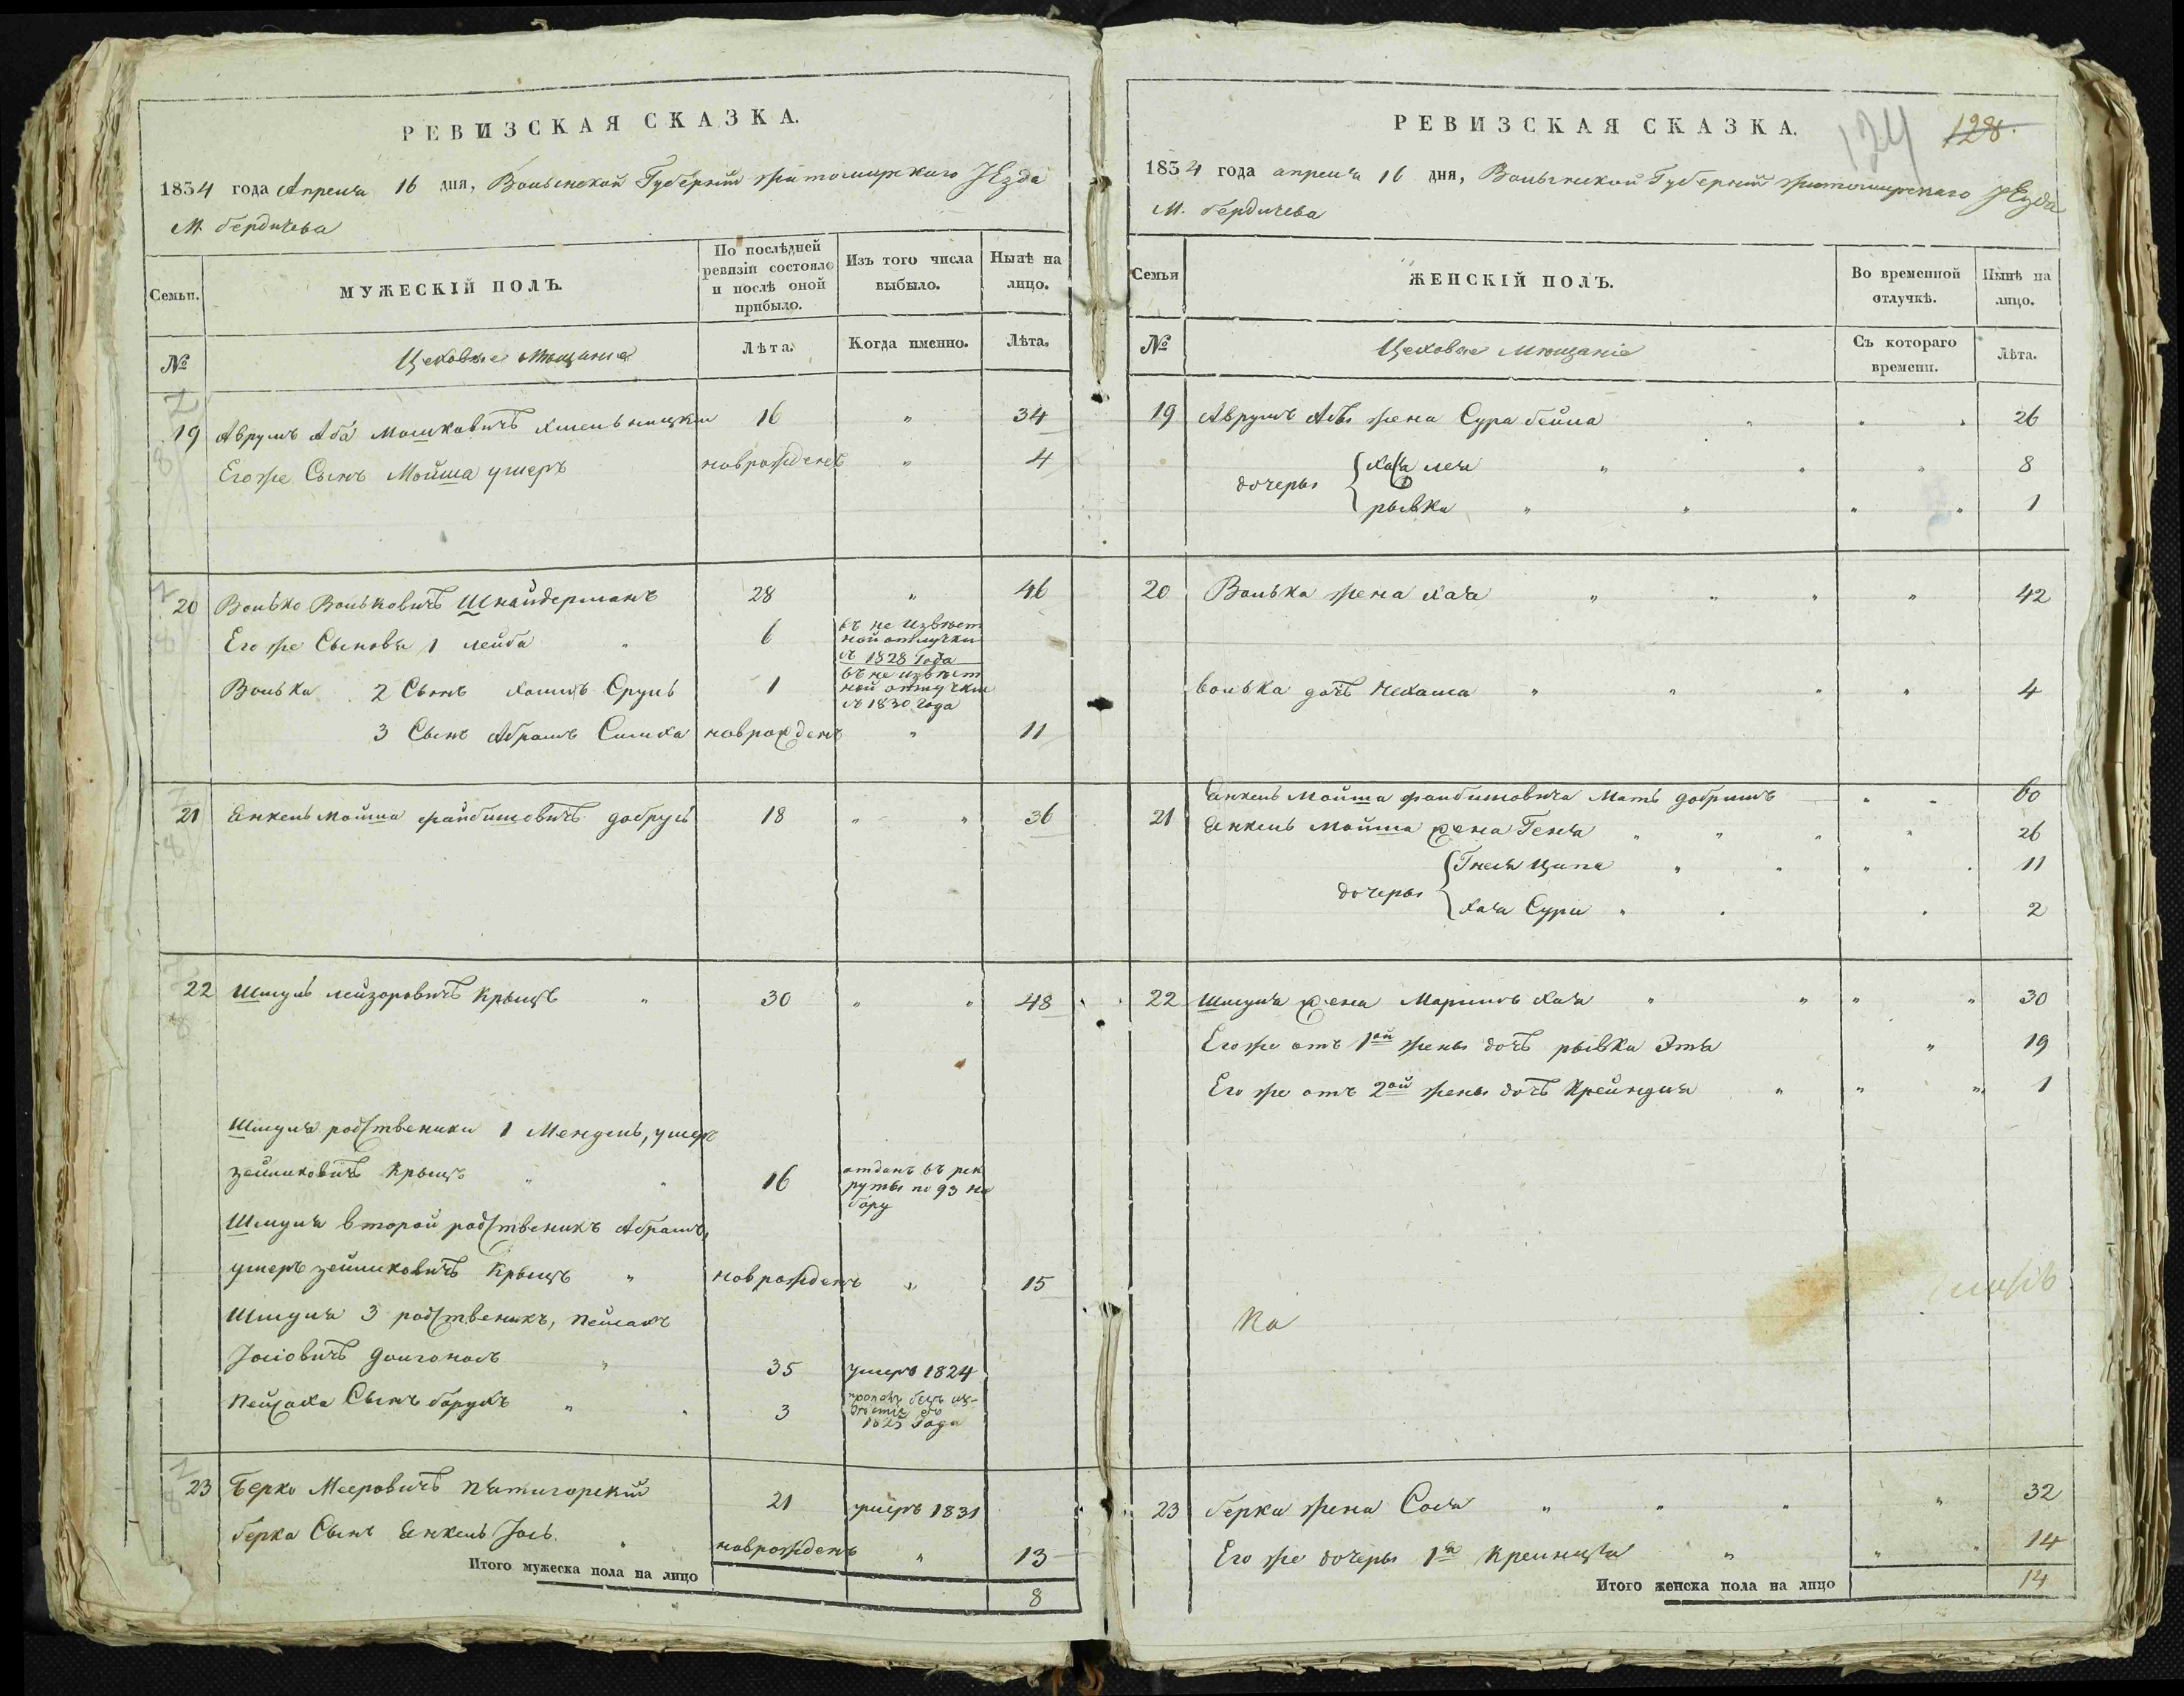 РЕВИЗСКАЯ СКАЗКА.
1834 года Апреля 16 дня, Волынской Губернии житомирского УЕзда
М. бердичева
Семьи.
МУЖЕСКІЙ ПОЛЪ.
По послѣдней ревизіи состояло и послѣ оной прибыло.
Изъ того числа выбыло.
Нынѣ на лицо.
№
Цеховые Мещание
Лѣта.
Когда именно.
Лѣта.
19 Аврумъ Аба Мошковичъ хмельницкий 16 " 34
Егоже Сынъ Мойша умеръ новрожденъ " 4
20 Волько Вольковичъ Шнайдерманъ 28 " 46
Его же Сыновья 1 лейба " 6 въ не извѣст
ной отлучки
съ 1828 Года
Волька 2 Сынъ хаимъ Сруль 1 въ не извѣст
ной отлучки
съ 1830 года
3 Сынъ Абрамъ Симха новрожденъ " 11
21 Янкель Мойша файбишовичъ добрусь 18 " " 36
22 Шмуль лейзоровичъ Крыцъ " 30 " " 48
Шмуля родственики 1 Мендель, умеръ
зейликовичъ Крыцъ " " 16 отданъ въ рек
руты по 93 на
бору
Шмуля второй родственикъ Абрамъ,
умеръ зейликовичъ Крыцъ " новрожденъ " 15
Шмуля 3 родственикъ, пейсахъ
Јосіовичъ долгоносъ " 35 умеръ 1824
пейсаха Сынъ борухъ " " 3
1825 Года
23 Берко Мееровичъ пятигорскій 21 умеръ 1831
берка Сынъ Янкель Јось " новрожденъ " 13
Итого мужеска пола на лицо 8
РЕВИЗСКАЯ СКАЗКА.
124 128.
1834 года апреля 16 дня, Волынской Губерній житомирскаго УЕзда
М. бердичева
Семьи
ЖЕНСКІЙ ПОЛЪ.
Во временной отлучкѣ.
Нынѣ на лицо.
№
Цеховые Мещаніе
Съ котораго времени.
Лѣта.
19 Аврумъ Абы жена Сура бейла " " " 26
дочеры { хася лея " " " 8
рывка " " " " 1
20 Волька жена хая " " " " 42
волька дочъ Нехама " " " " 4
Янкель Мойша файбишовича Мать добришъ " " 60
21 Янкель Мойша жена Геня " " " " 26
дочеры { Гнеся ципа " " " . 11
хая Сури " . . 2
22 Шмуля жена Маримъ хая " " " " 30
Егоже отъ 1ой жены дочъ рывка Этя " 19
Его же отъ 2ой жены дочъ Крейндля " " " 1
На
23 берка жена Сося " " " " 32
Его же дочеры 1я Крейнця " " " 14
Итого женска пола на лицо 14